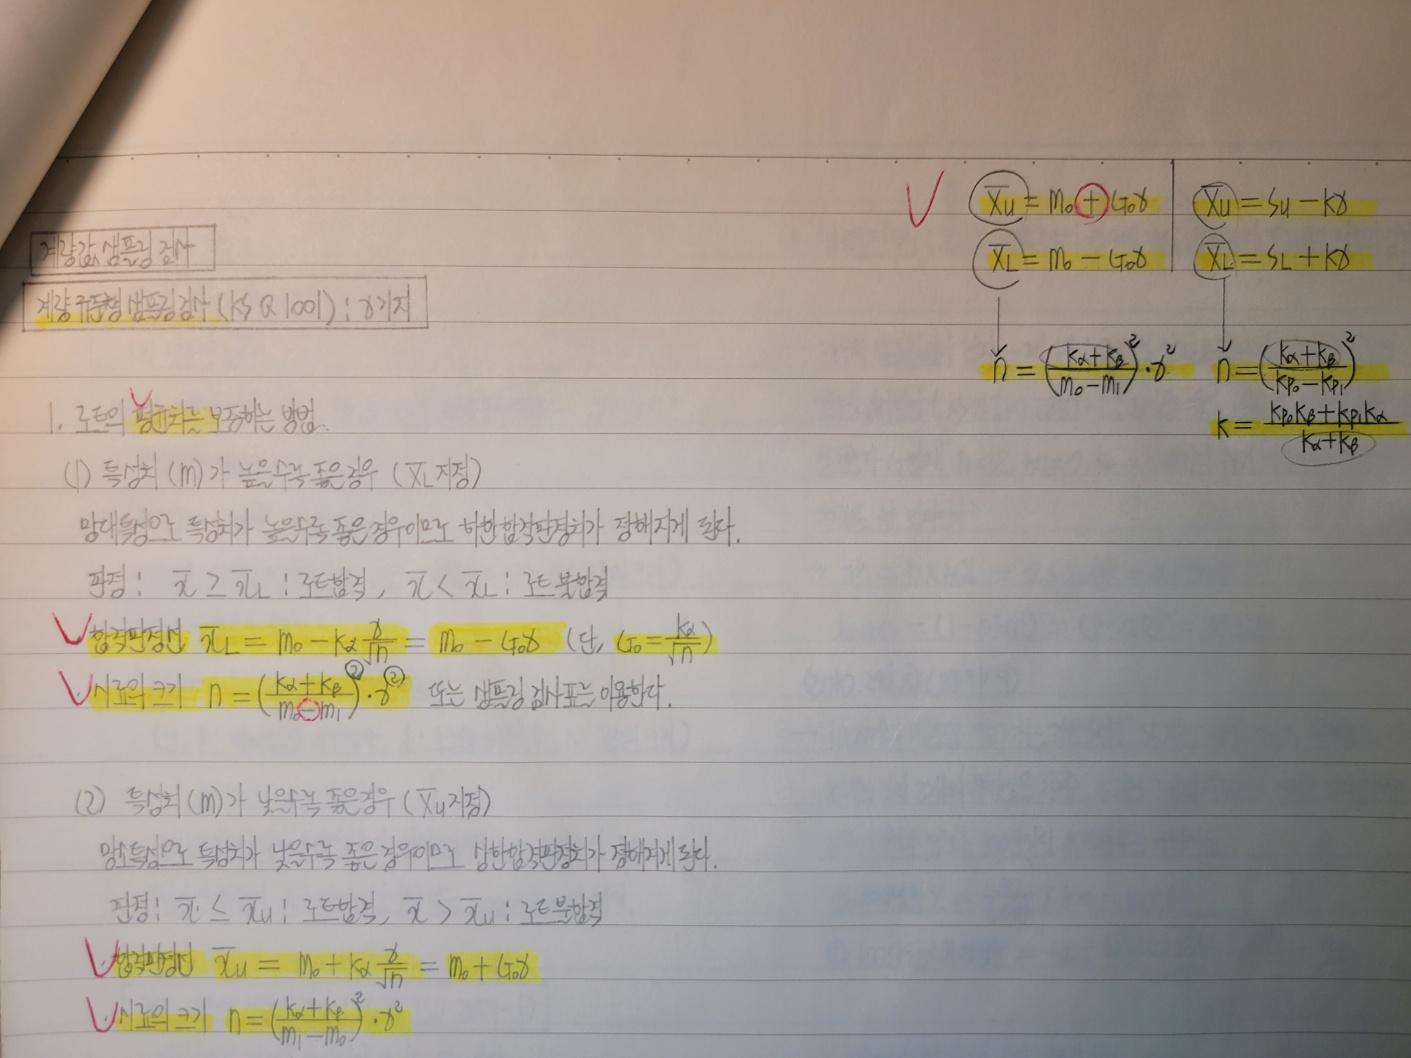 계량값 샘플링 검사
계량 규준형 샘플링 검사 (KS Q 1001) : σ기지
X̄U = m₀ + G₀σ
X̄L = m₀ - G₀σ
n = (kα+kβ / m₀-m₁)² · σ²
X̄U = SU - kσ
X̄L = SL + kσ
n = (kα+kβ / kp₀-kp₁)²
k = kp₀kβ+kp₁kα / kα+kβ
1. 로트의 평균치를 보증하는 방법.
(1) 특성치 (m)가 높을수록 좋은경우 (X̄L지정)
망대특성으로 특성치가 높을수록 좋은 경우이므로 하한합격판정치가 정해지게 된다.
판정 : x̄ ≥ x̄L : 로트합격, x̄ < x̄L : 로트 불합격
합격판정선 x̄L = m₀ - kα σ/√n = m₀ - G₀σ (단, G₀ = kα/√n)
시료의 크기 n = (kα+kβ / m₀-m₁)² · σ² 또는 샘플링 검사표를 이용한다.
(2) 특성치 (m)가 낮을수록 좋은경우 (X̄U지정)
망소특성으로 특성치가 낮을수록 좋은 경우이므로 상한합격판정치가 정해지게 된다.
판정 : x̄ ≤ x̄U : 로트합격, x̄ > x̄U : 로트불합격
합격판정선 x̄U = m₀ + kα σ/√n = m₀ + G₀σ
시료의 크기 n = (kα+kβ / m₁-m₀)² · σ²